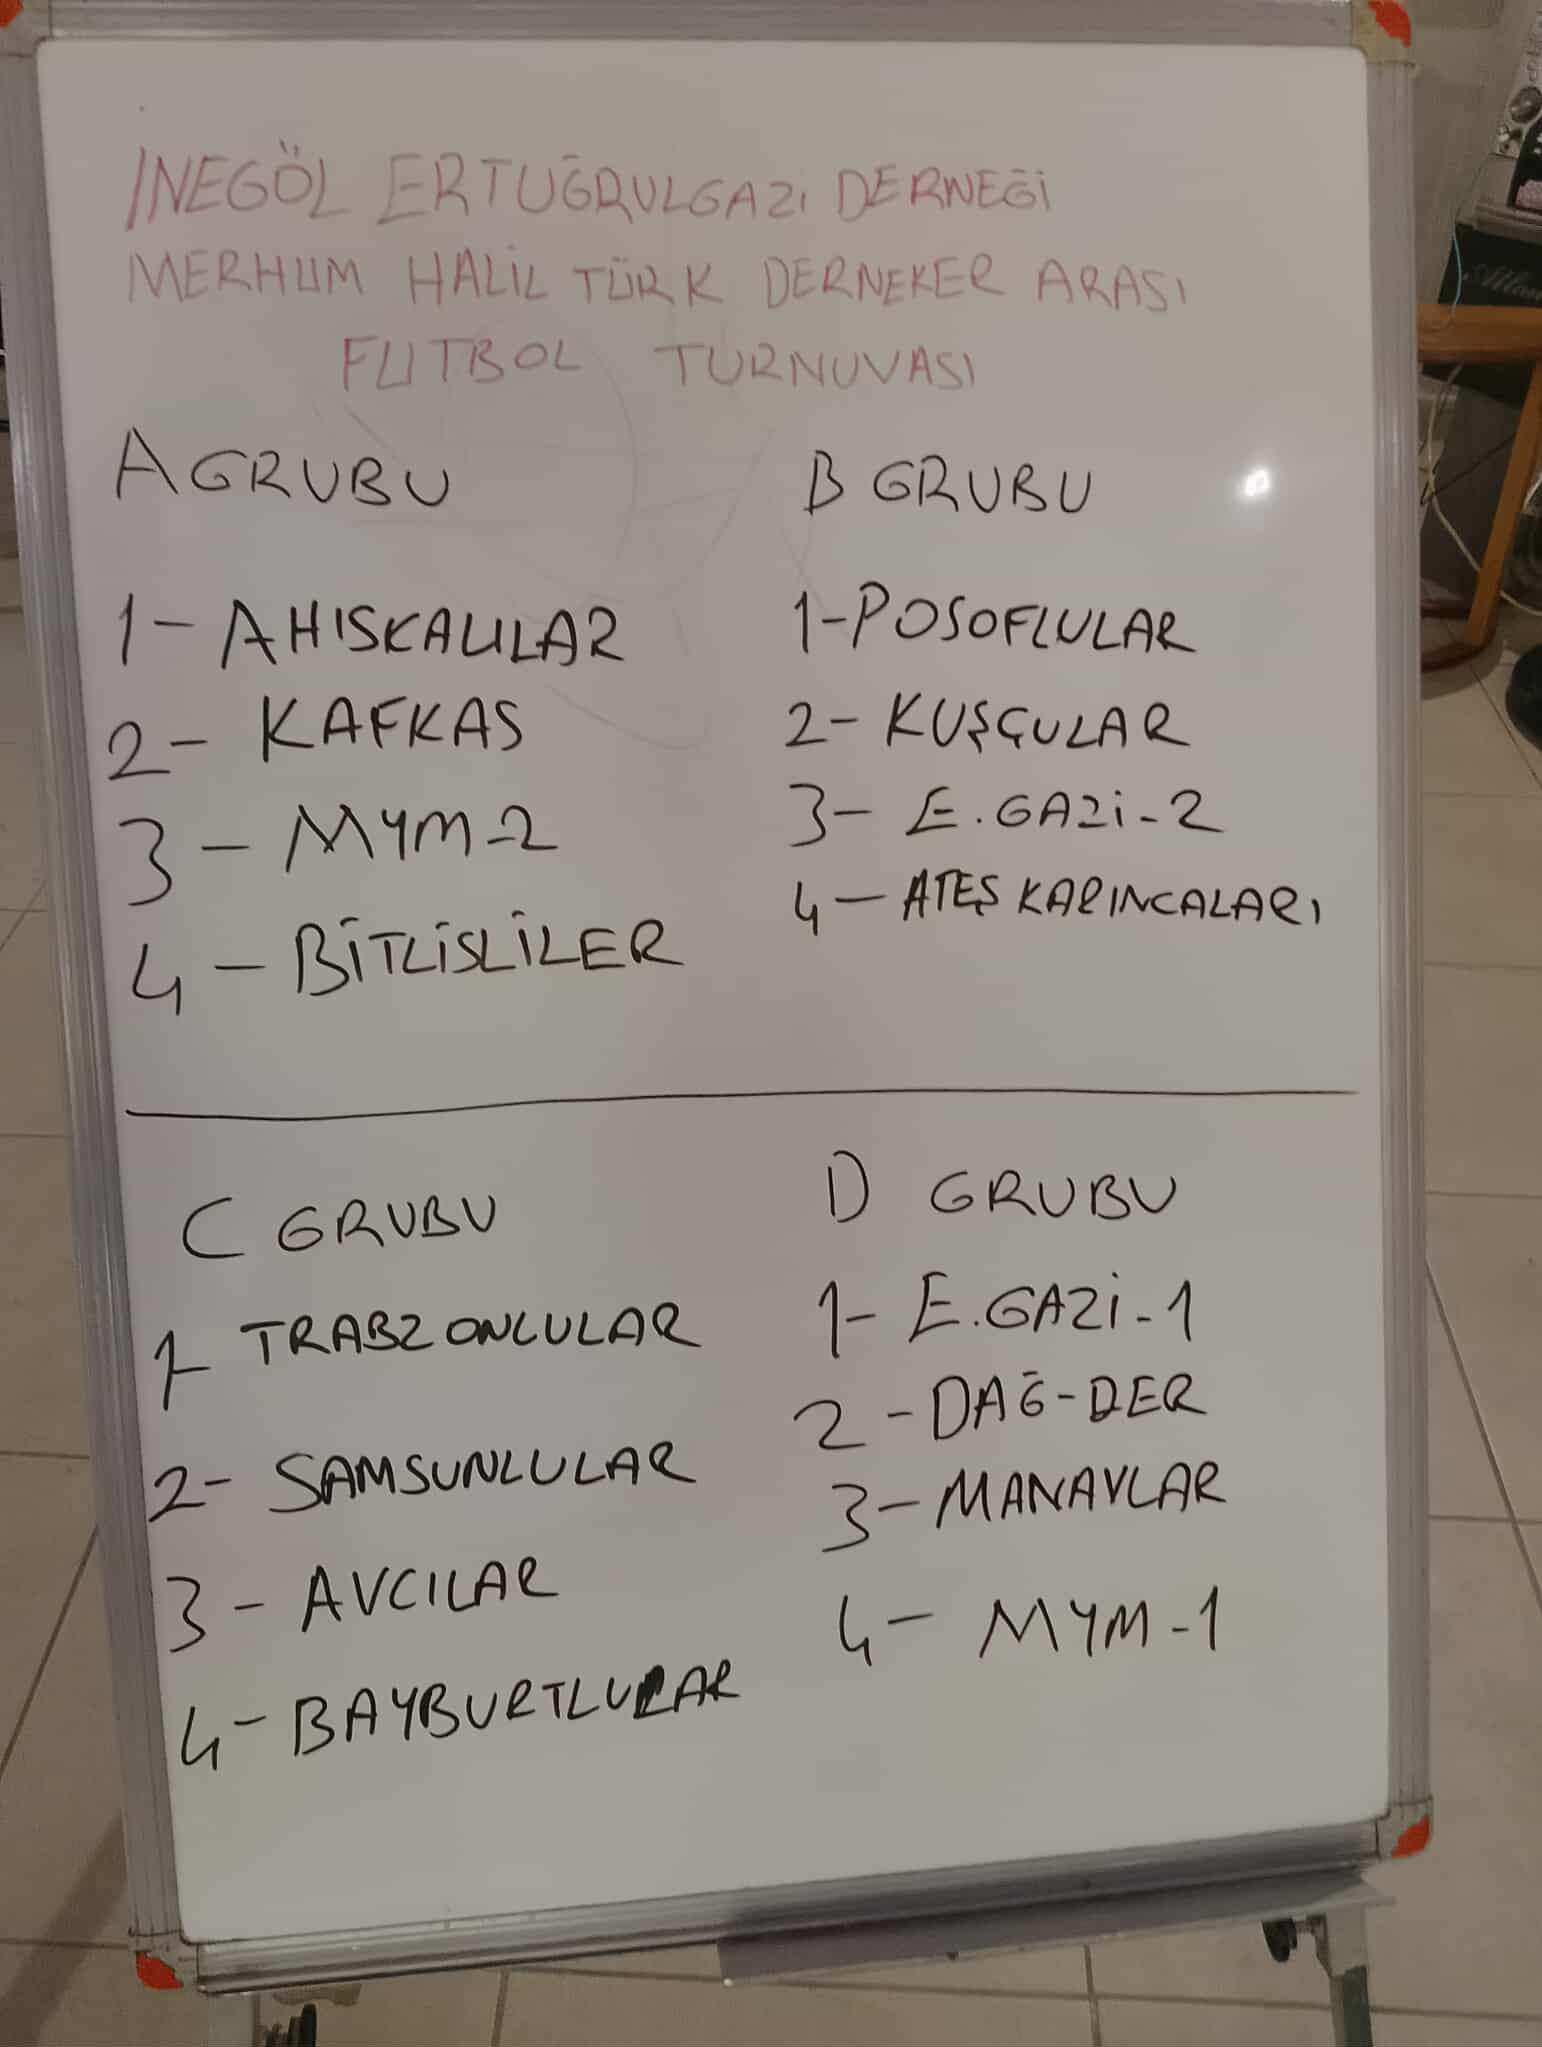 İNEGÖL ERTUĞRULGAZİ DERNEĞİ
MERHUM HALİL TÜRK DERNEKER ARASI
FUTBOL TURNUVASI
A GRUBU
1- AHISKALILAR
2- KAFKAS
3- MYM-2
4- BİTLİSLİLER
B GRUBU
1- POSOFLULAR
2- KUŞÇULAR
3- E.GAZİ-2
4- ATEŞ KARINCALARI
C GRUBU
1- TRABZONLULAR
2- SAMSUNLULAR
3- AVCILAR
4- BAYBURTLULAR
D GRUBU
1- E.GAZİ-1
2- DAĞ-DER
3- MANAVLAR
4- MYM-1